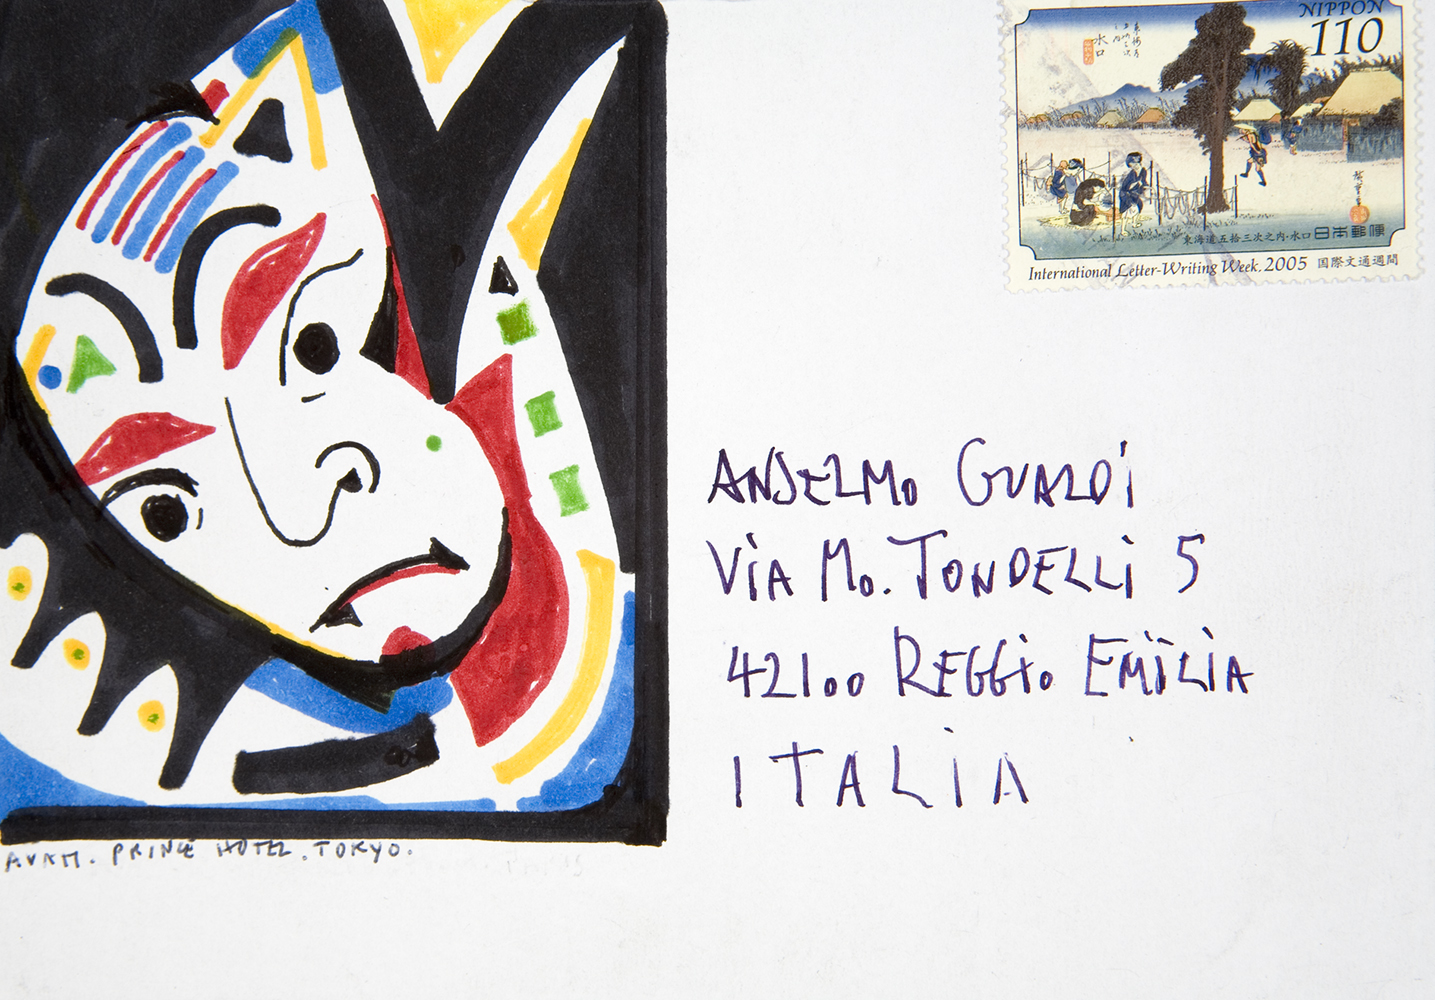 NIPPON
110
水口
東海道五拾三次之内・水口 日本郵便
International Letter-Writing Week, 2005 国際文通週間
ANSELMO GUALDI
VIA Mo. TONDELLI 5
42100 REGGIO EMILIA
ITALIA
PRINCE HOTEL. TOKYO.